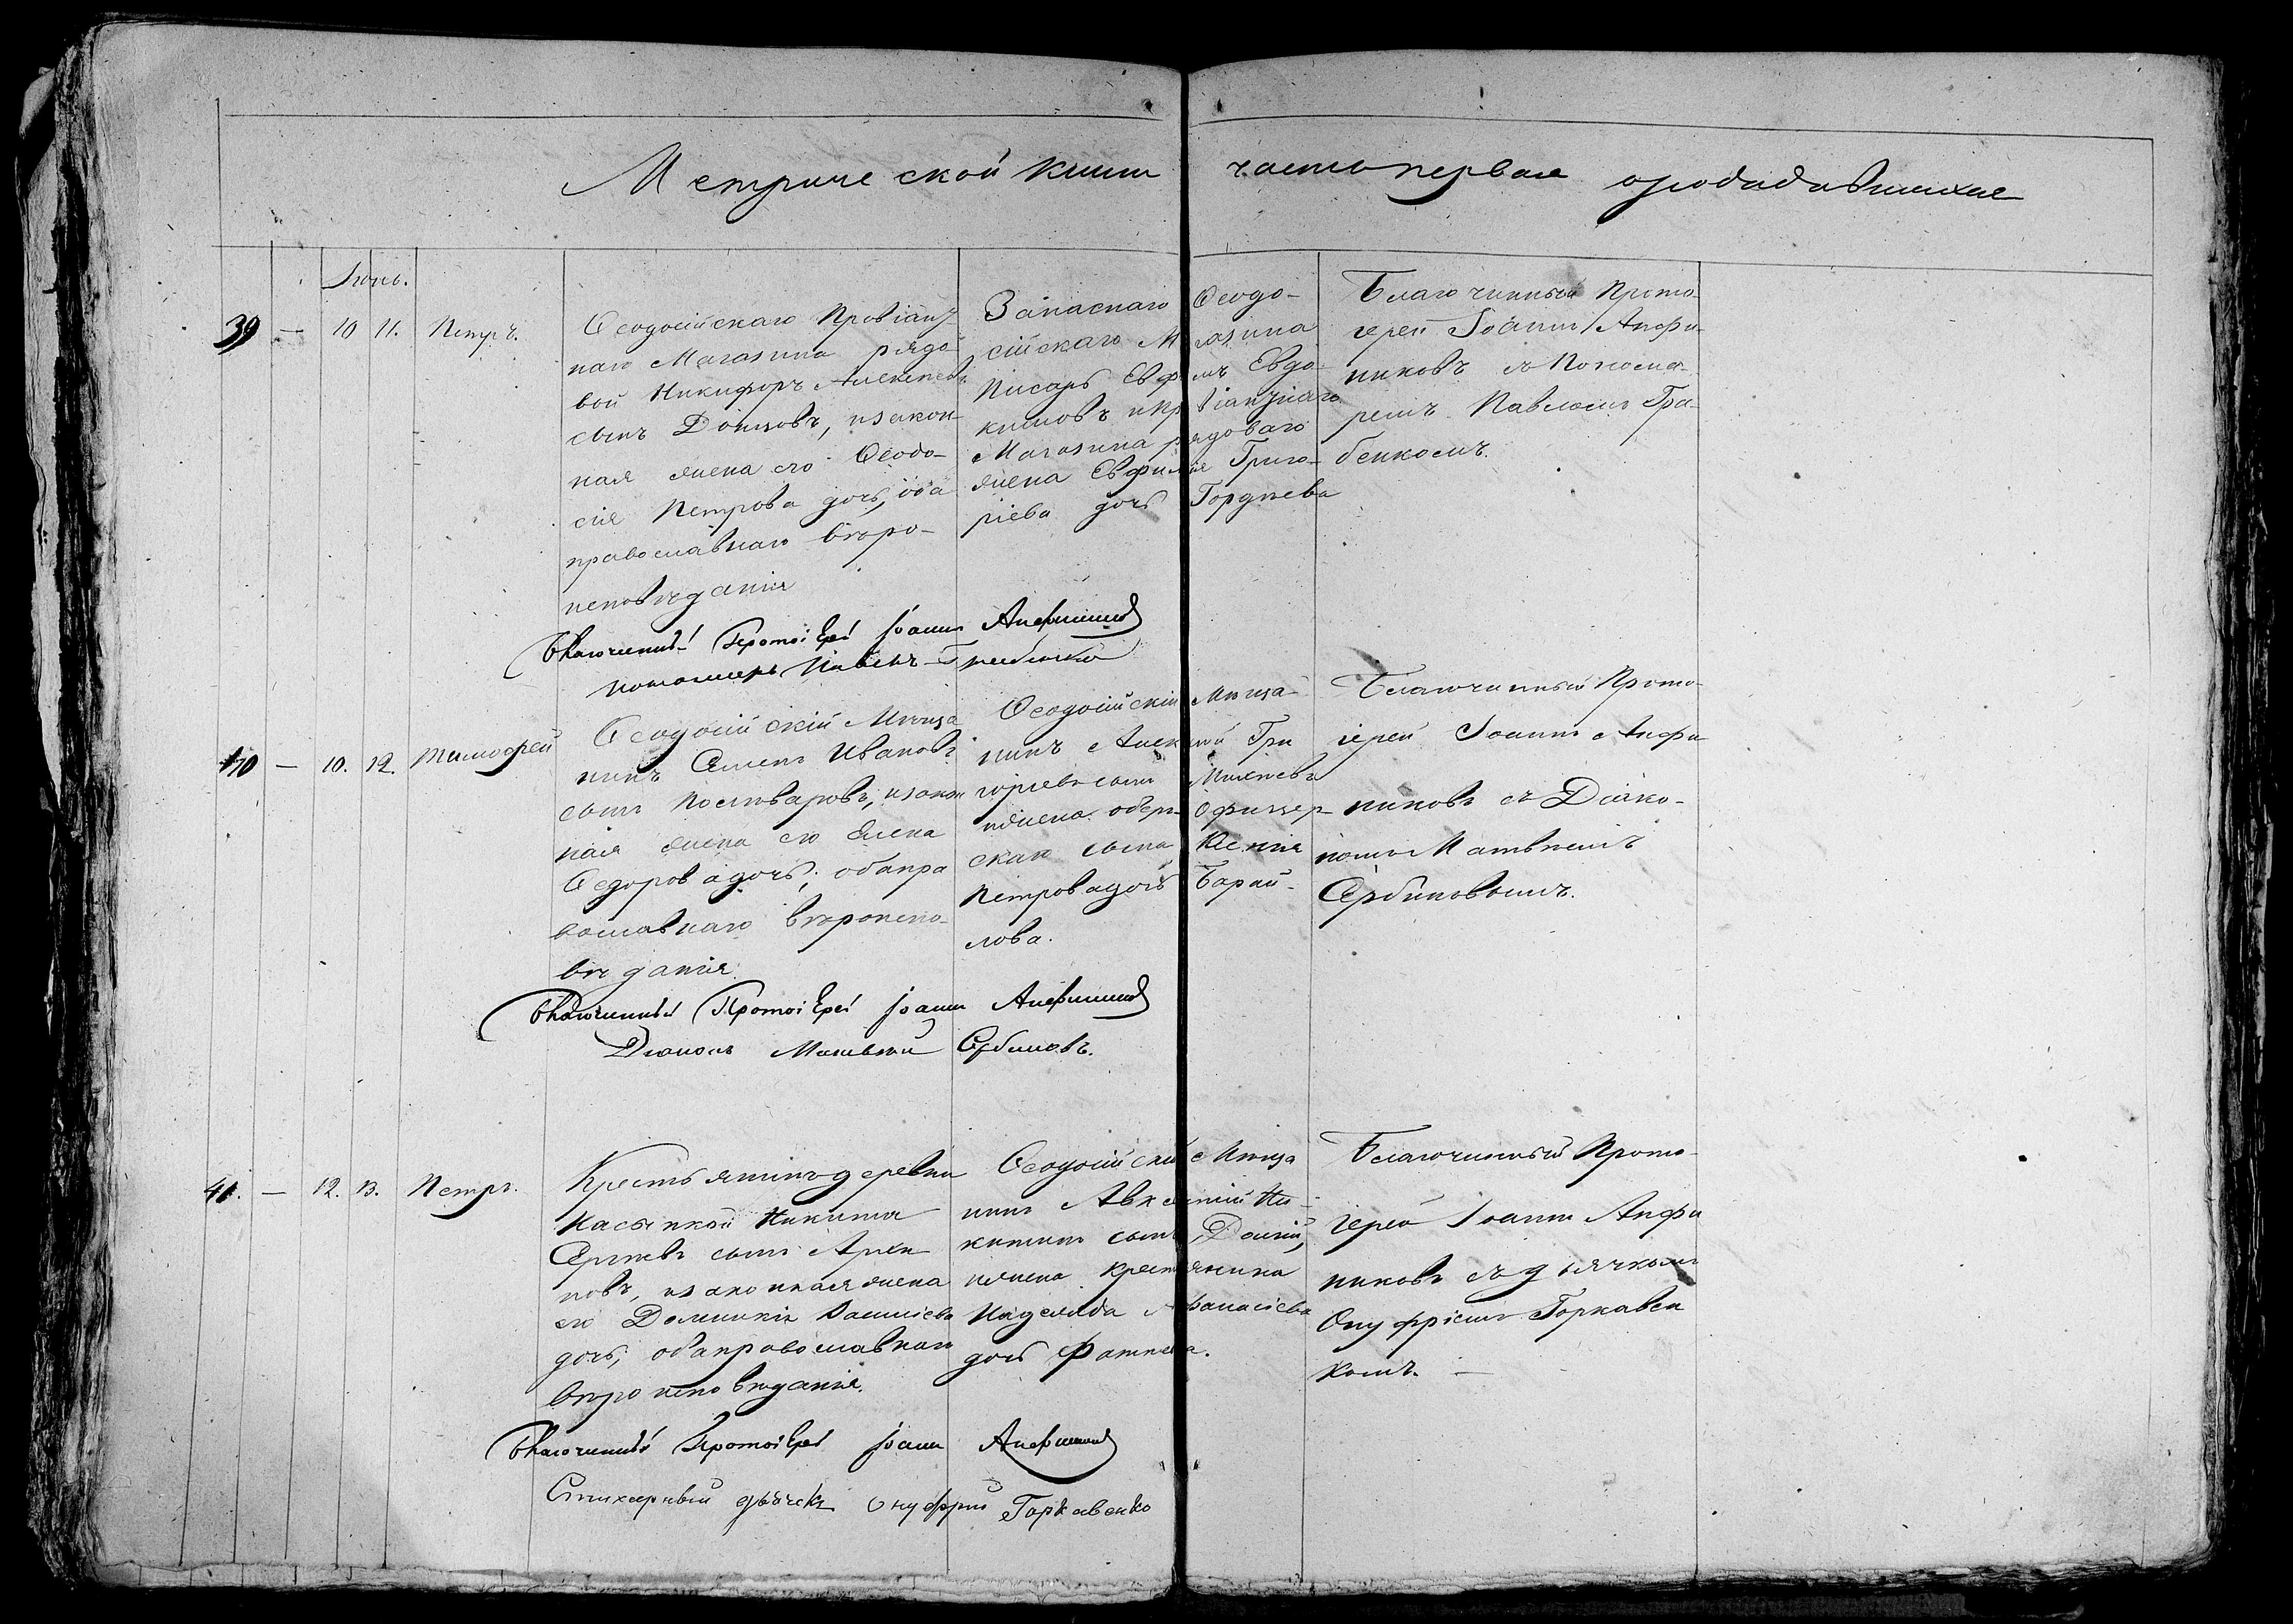 Метрической книги часть первая о родившихся
Іюнь.
39 — 10 11. Петръ.
Ѳеодосійскаго Провіант
наго Магазина рядо
вой Никифоръ Алексѣевъ
сынъ Донцовъ, и закон
ная жена его Ѳеодо-
сія Петрова дочь, оба
православнаго вѣро-
исповѣданія
Запаснаго Ѳеодо-
сійскаго Магазина
Писарь Евфимъ Евдо-
кимовъ и Провіантнаго
Магазина рядоваго
жена Евфимія Григо-
ріева дочь Гордѣева
Благочинный Прото-
іерей Іоаннъ Анфи-
никовъ съ Понома-
ремъ Павломъ Гри-
бенкомъ.
Благочинный Протоіерей Іоаннъ
пономарь Павелъ
40 — 10. 12. Тимофей
Ѳеодосійскій Мѣща
нинъ Семенъ Ивановъ
сынъ, и закон
ная жена его Елена
Ѳедорова дочь, оба пра
вославнаго вѣроиспо-
вѣданія.
Ѳеодосійскій Мѣща-
нинъ Алексѣй Гри
горіевъ сынъ
и жена оберъ-Офицер-
скаго сына Ксенія
Петрова дочь Барай-
лова.
Благочинный Прото-
іерей Іоаннъ Анфи
никовъ съ Діако-
номъ Матвѣемъ
Сербиновымъ.
Благочинный Протоіерей Іоаннъ
Діаконъ Матвѣй Сербиновъ.
41. — 12. 13. Петръ.
Крестьянинъ деревни
Насыпкой Никита
Сергѣевъ сынъ
новъ, и законная жена
его Домникія Василіева
дочь, оба православнаго
вѣроисповѣданія.
Ѳеодосійскій Мѣща
нинъ Авксентій Ни-
китинъ сынъ
и жена крестьянина
Надежда Афанасіева
дочь
Благочинный Прото-
іерей Іоаннъ Анфи
никовъ съ дьячкомъ
Онуфріемъ Горкавен
комъ. —
Благочинный Протоіерей Іоаннъ
Стихарный дьячекъ Онуфрій Горкавенко